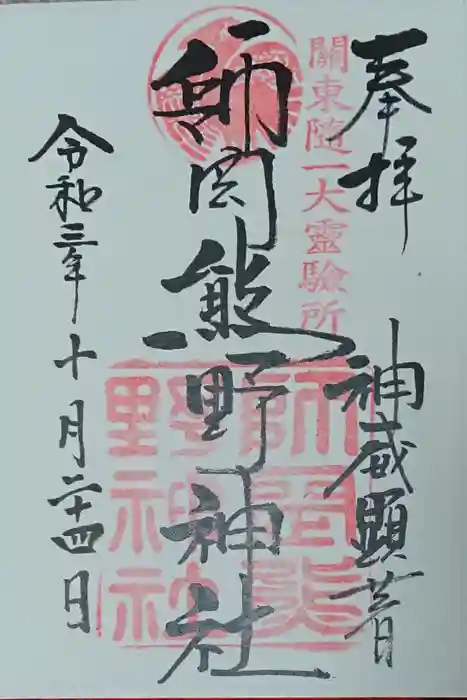 奉拝 神威顕著
關東随一大靈驗所
師岡熊野神社
師岡熊野神社
令和三年十月二十四日